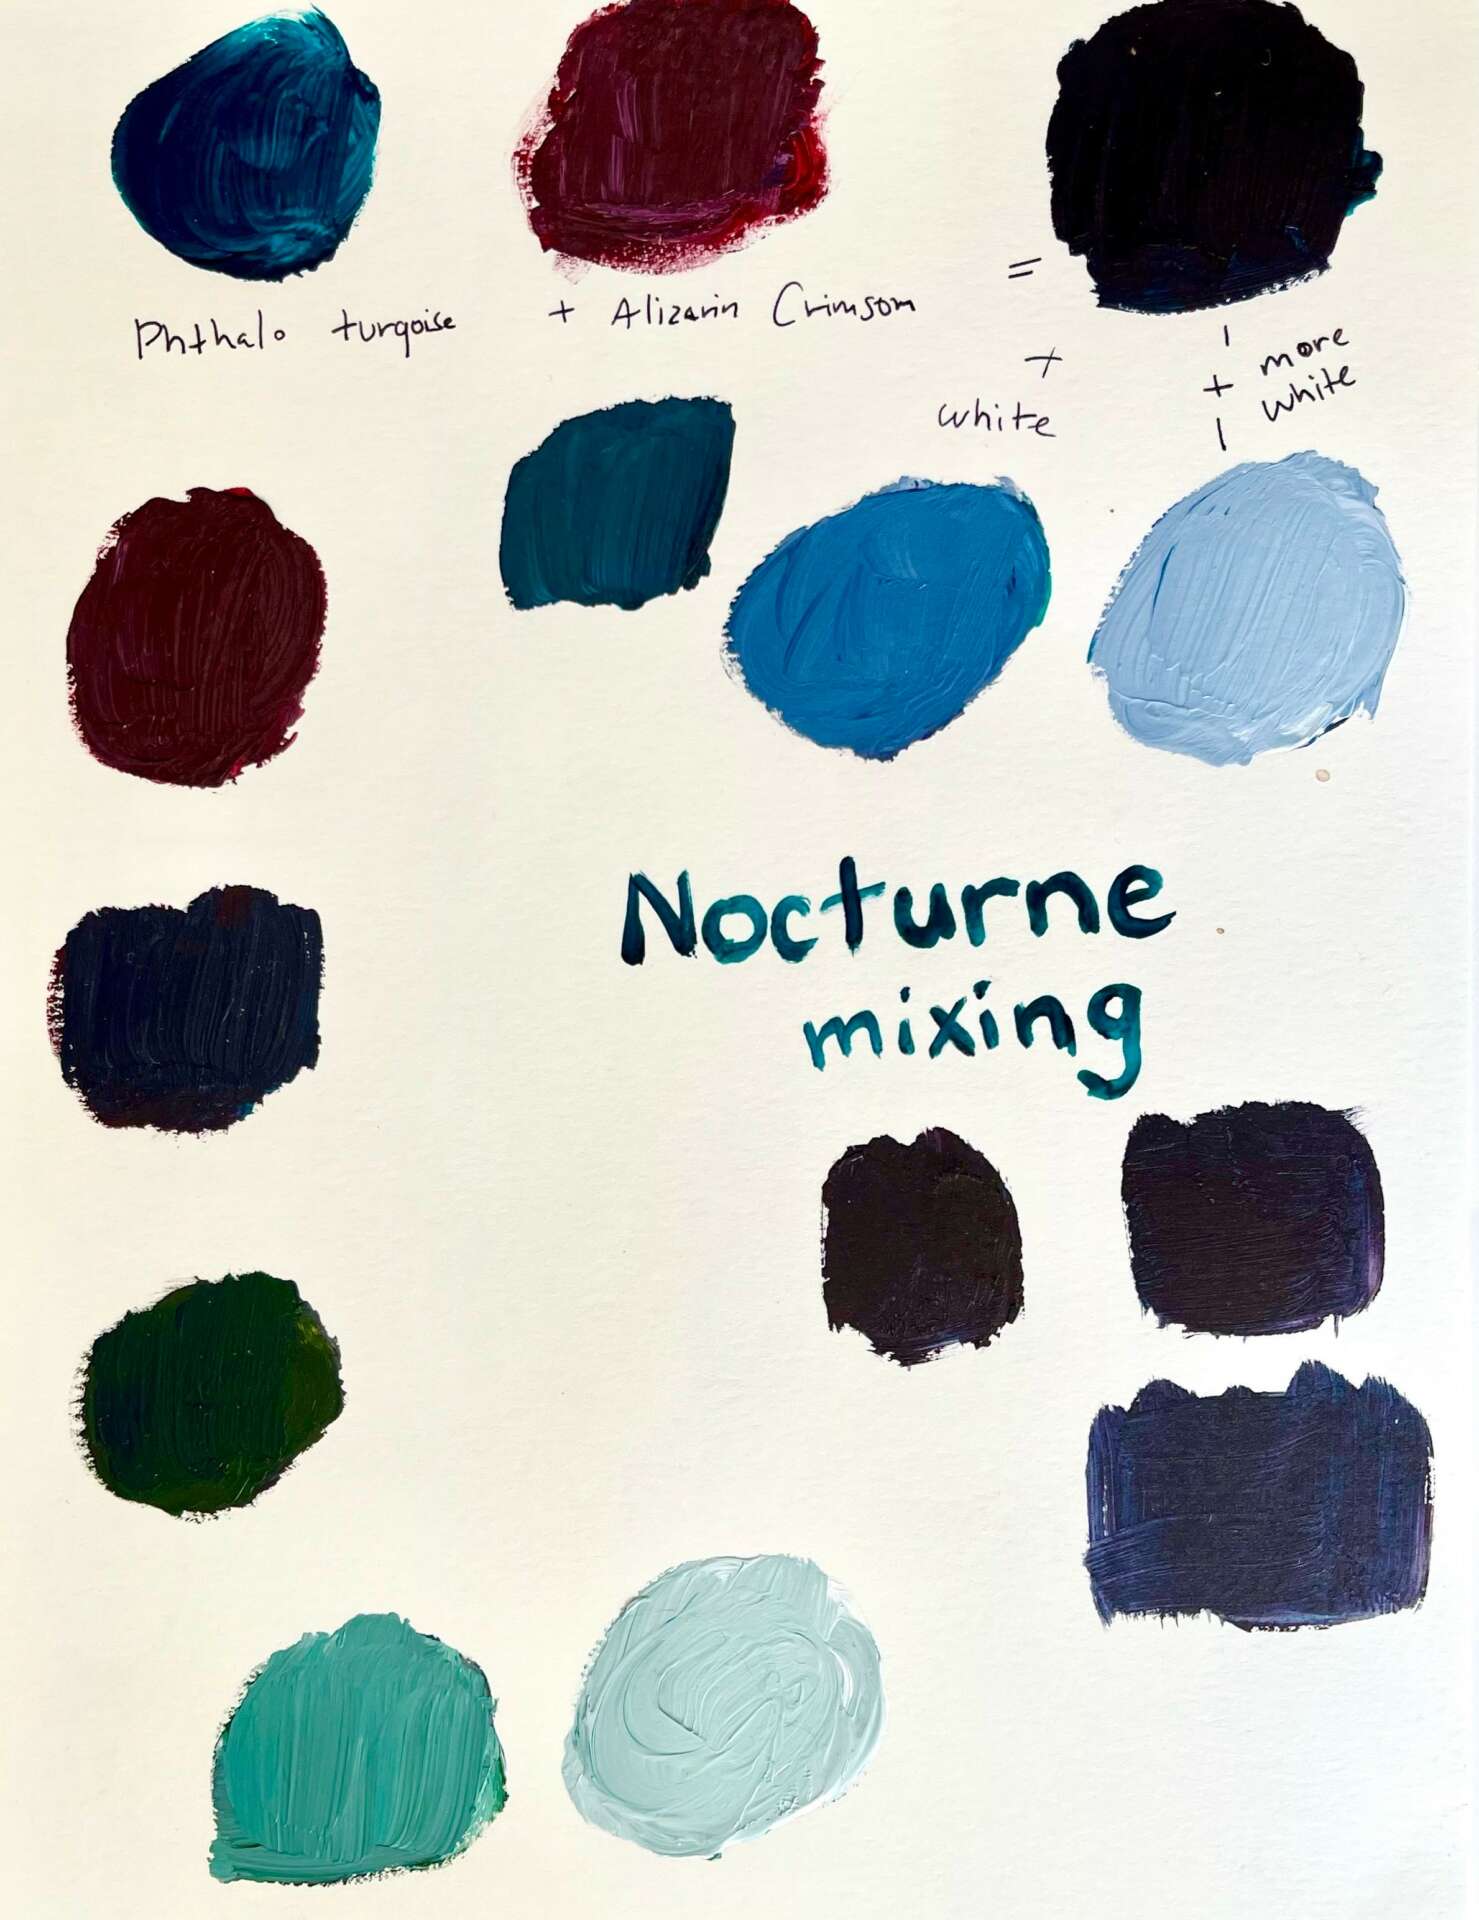 Phthalo turqoise + Alizarin Crimsom =
+
white
+ more
white
Nocturne
mixing